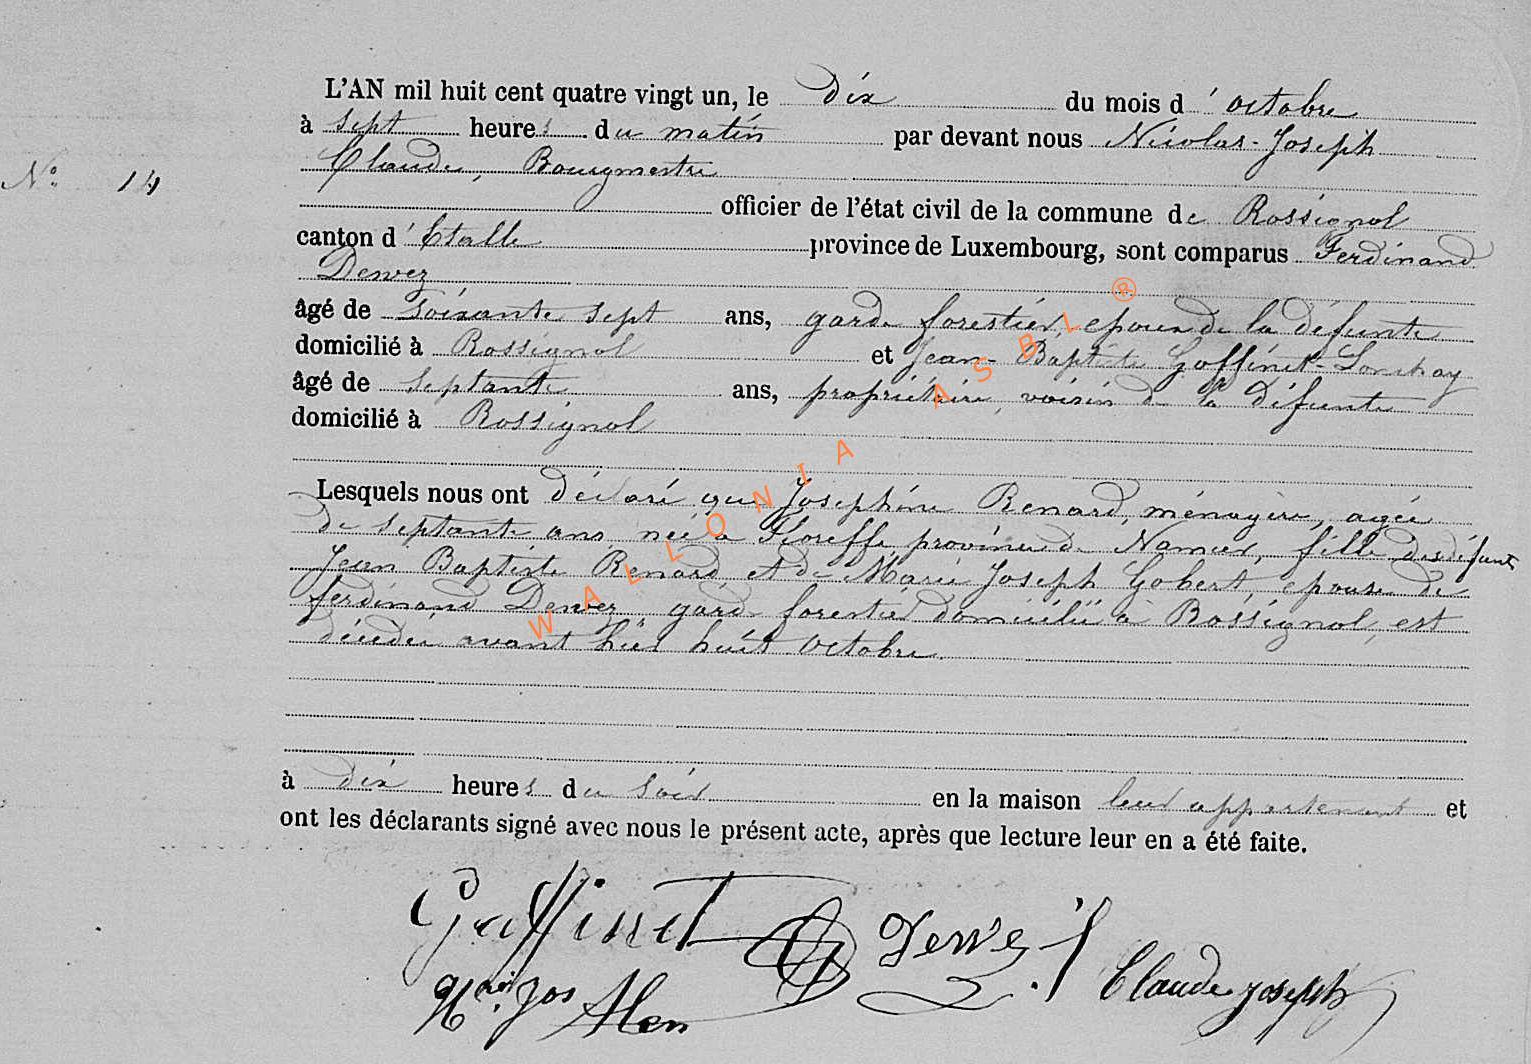 L'AN mil huit cent quatre vingt un, le dix du mois d'octobre
à sept heures du matin par devant nous Nicolas-Joseph
N° 14
Claude, Bourgmestre
officier de l'état civil de la commune de Rossignol
canton d'Etalle province de Luxembourg, sont comparus Ferdinand
Dewez
âgé de soixante sept ans, garde forestier, epoux de la défunte
domicilié à Rossignol et Jean-Baptiste Goffinet-Lonchay
âgé de septante ans, propriétaire, voisin de la défunte
domicilié à Rossignol
Lesquels nous ont déclaré que Joséphine Renard, ménagère, agée
de septante ans née à Floreffe province de Namur, fille des défunts
Jean Baptiste Renard et de Marie Joseph Gobert, epouse de
ferdinand Dewez garde forestier domicilié à Rossignol, est
décédée avant hier huit octobre
à dix heures du soir en la maison leur appartenant et
ont les déclarants signé avec nous le présent acte, après que lecture leur en a été faite.
Goffinet Dewez f
Claude joseph
WALLONIA ASBL ®